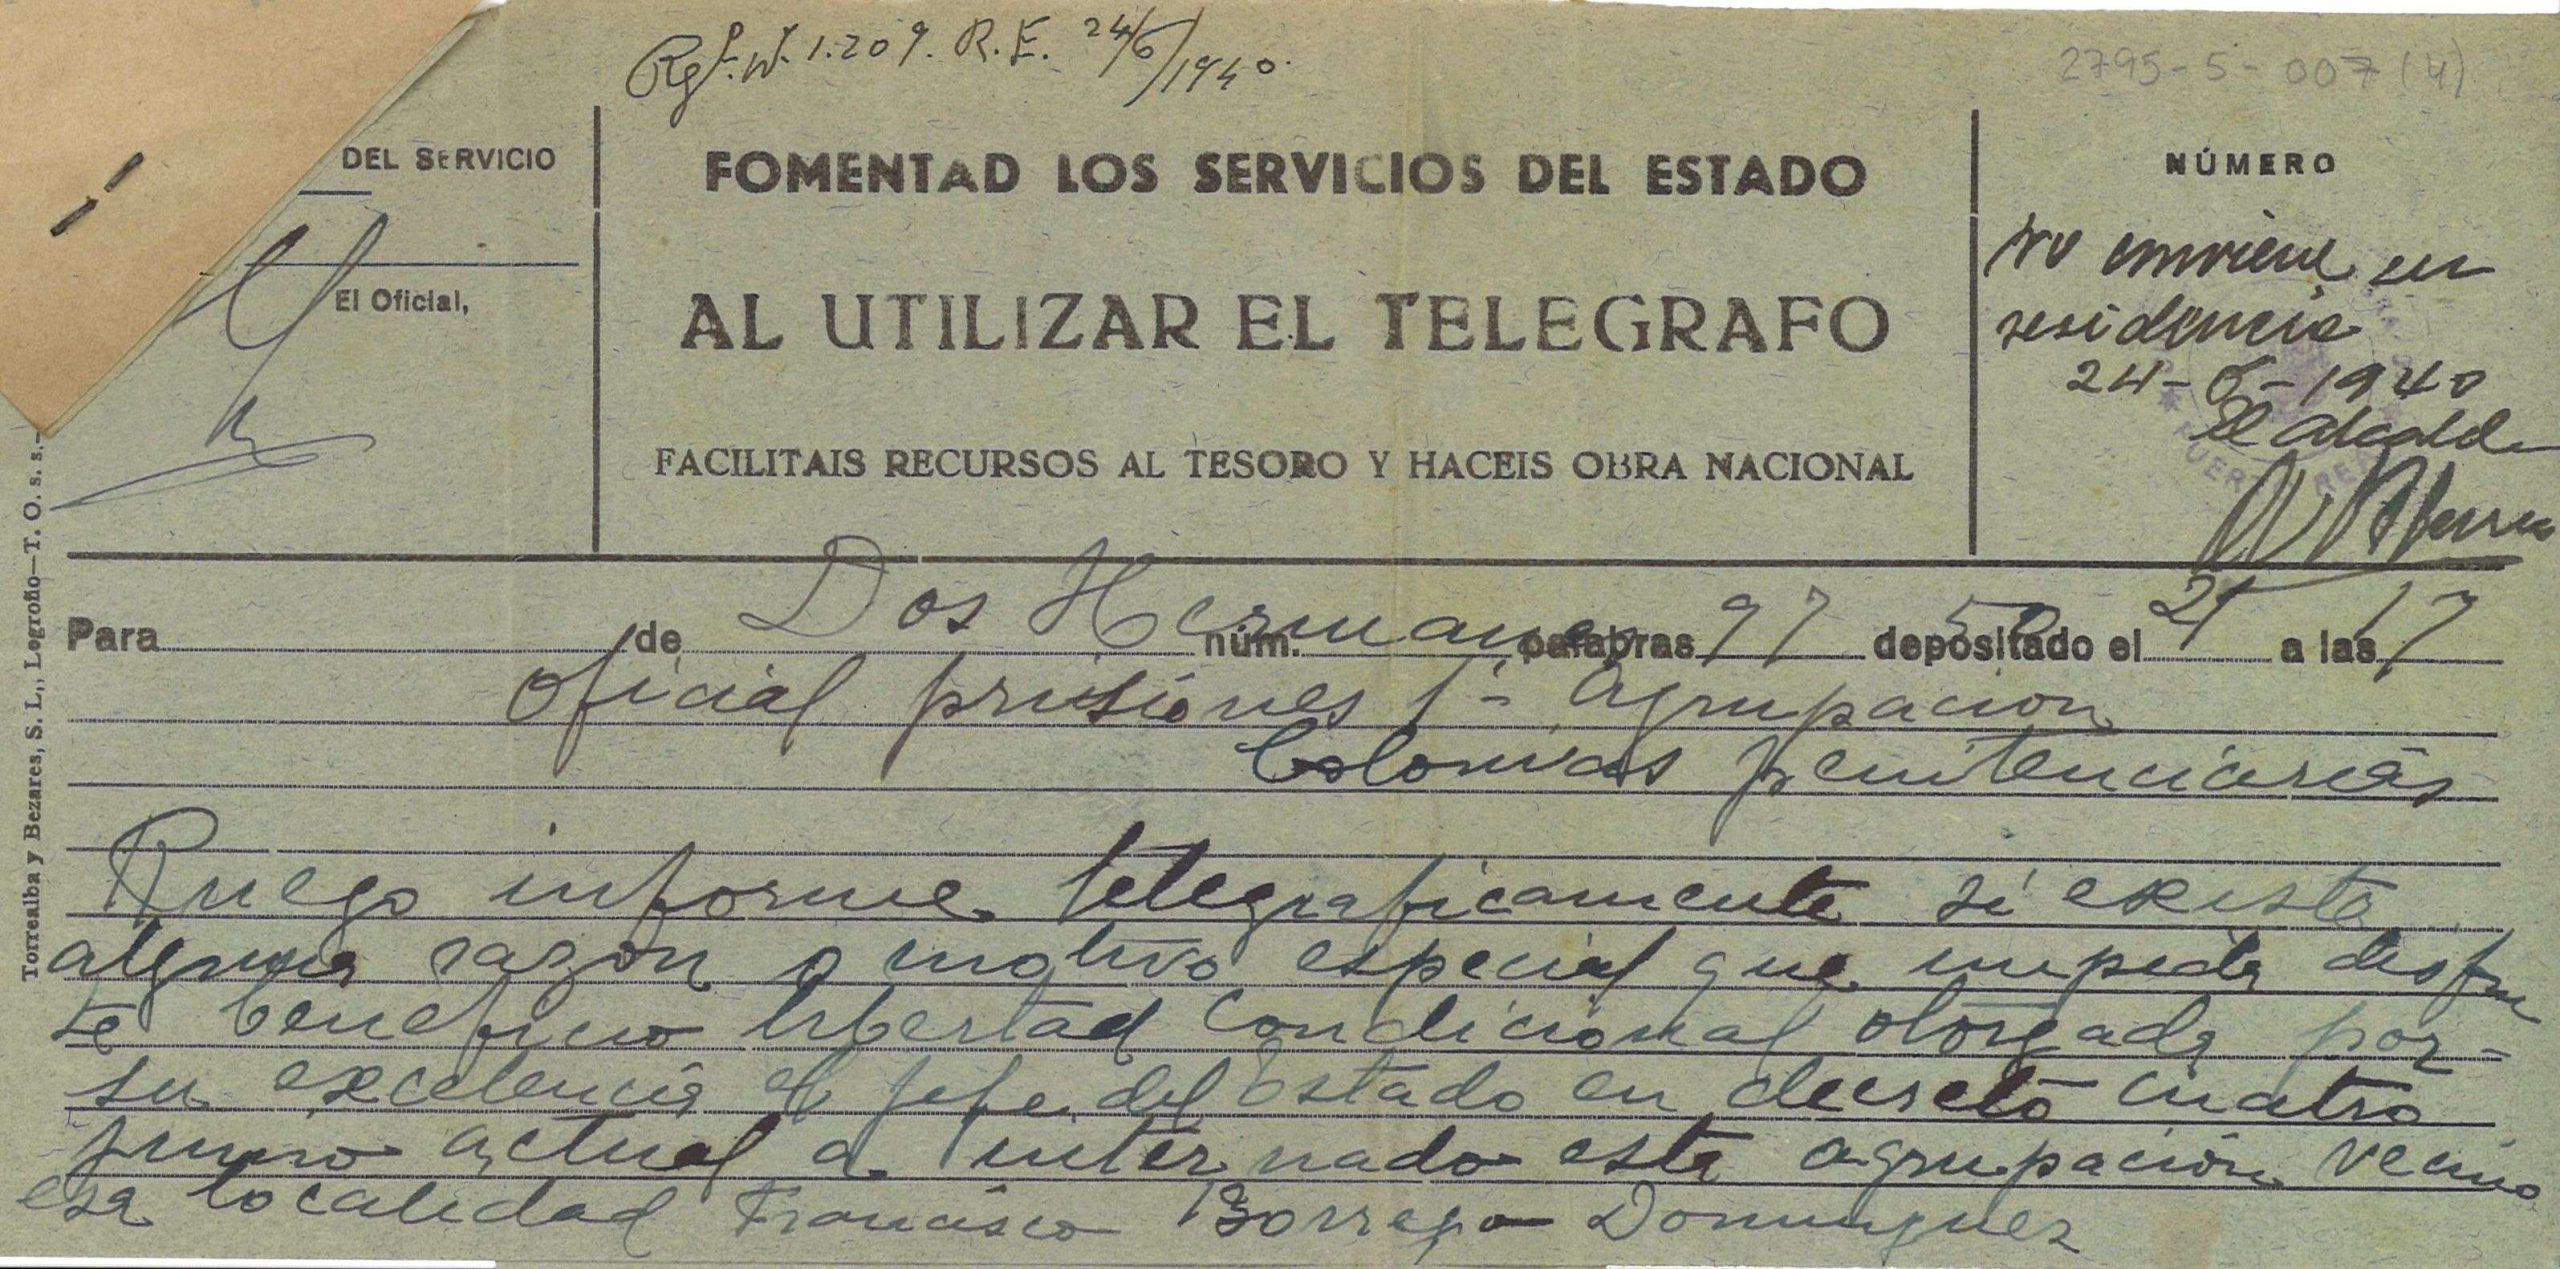 Rgº. Nº. 1.209. R.E. 24/6/1940.
2795-5-007 (4)
DEL SERVICIO
El Oficial,
FOMENTAD LOS SERVICIOS DEL ESTADO
AL UTILIZAR EL TELEGRAFO
FACILITAIS RECURSOS AL TESORO Y HACEIS OBRA NACIONAL
NÚMERO
no conviene su
residencia
24-6-1940
El alcalde
PUERTO REAL
Torrealba y Bezares, S. L., Logroño—T. O. s. s.
Para de Dos Hermanas núm. palabras 97 50 depositado el 21 a las 17
oficial prisiones 1ª Agrupación
Colonias penitenciarias
Ruego informe telegraficamente si existe
alguna razon o motivo especial que impida disfru
te beneficio libertad condicional otorgada por-
su excelencia el jefe del Estado en decreto cuatro
junio actual a internado esta agrupación vecino
esa localidad Francisco Borrego Dominguez